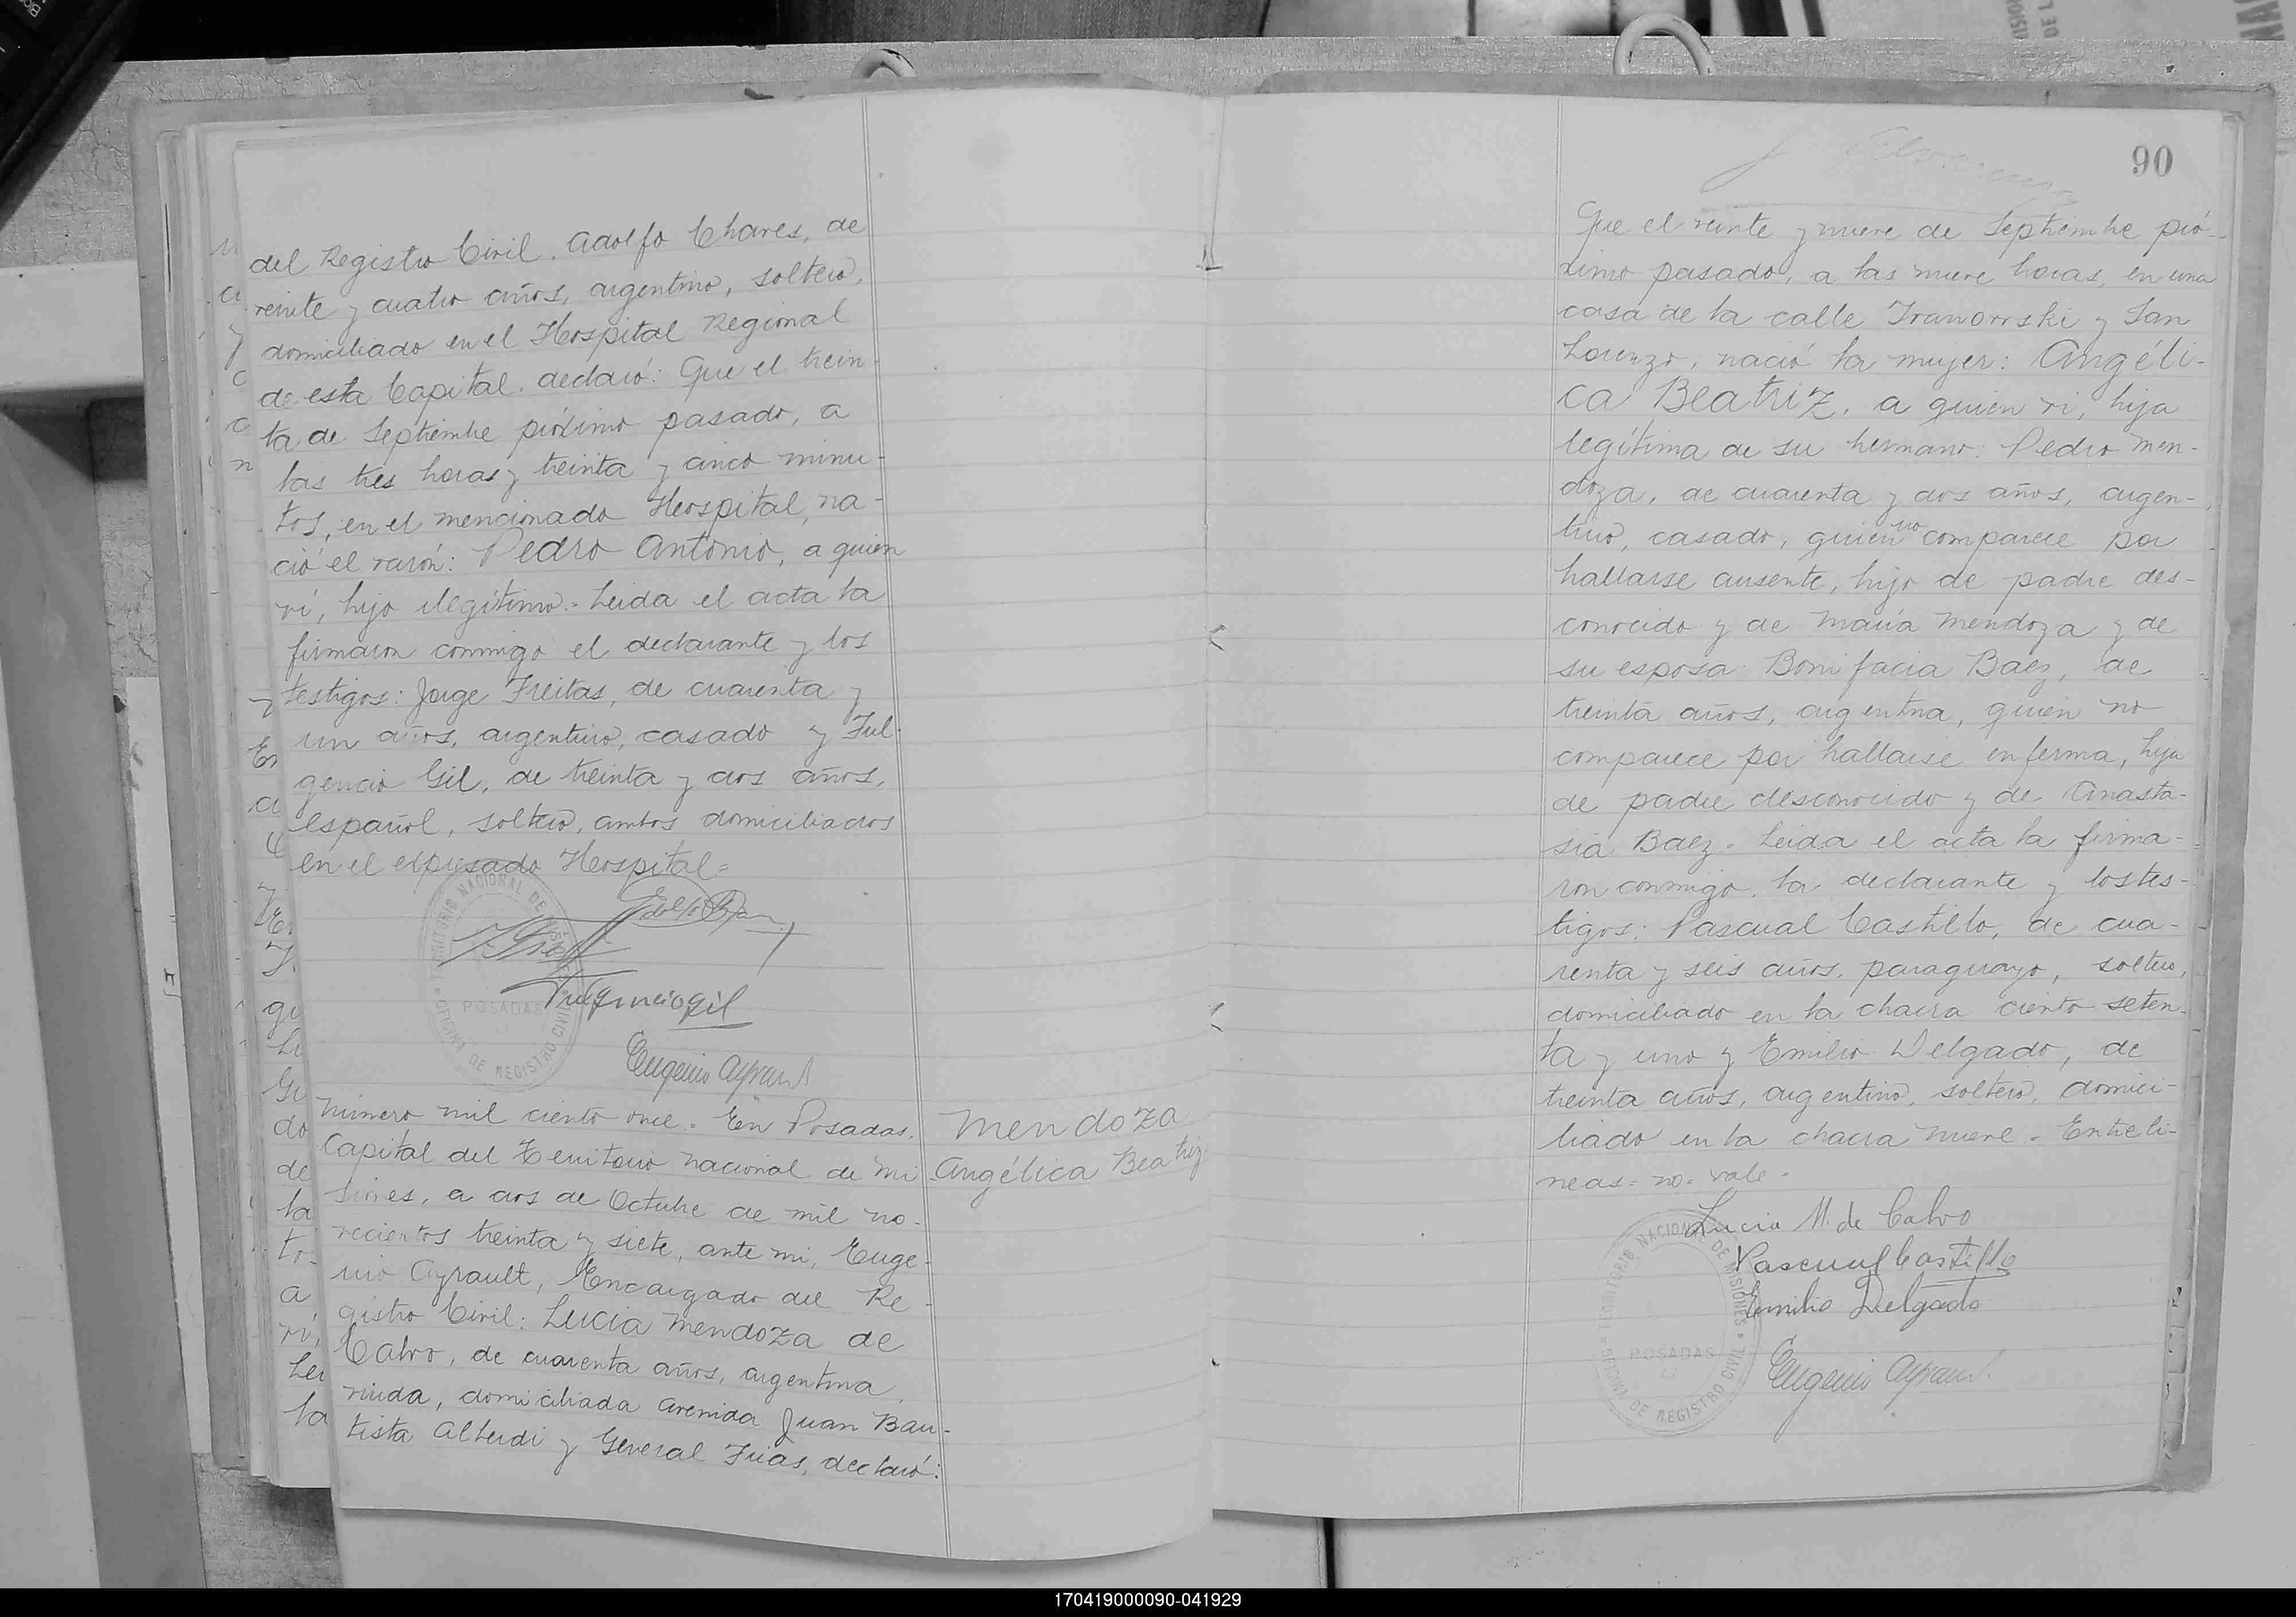 del Registro Civil. Adolfo Chaves, de
veinte y cuatro años, argentino, soltero,
domiciliado en el Hospital Regional
de esta Capital. declaró: Que el trein-
ta de Septiembre próximo pasado, a
las tres horas y treinta y cinco minu-
tos, en el mencionado Hospital, na-
ció el varón: Pedro Antonio, a quien
ví, hijo ilegítimo.- Leida el acta la
firmaron conmigo el declarante y los
testigos: Jorge Freitas, de cuarenta y
un años, argentino, casado y Ful-
gencio Gil, de treinta y dos años,
español, soltero, ambos domiciliados
en el expresado Hospital=
TERRITORIO NACIONAL DE MISIONES
POSADAS
OFICINA DE REGISTRO CIVIL
Fulgencio gil
Eugenio Ayrault
Número mil ciento once.- En Posadas,
Capital del Territorio Nacional de Mi
siones, a dos de Octubre de mil no-
vecientos treinta y siete, ante mi, Euge-
nio Ayrault, Encargado del Re-
gistro Civil: Lucia Mendoza de
Calvo, de cuarenta años, argentina,
viuda, domiciliada Avenida Juan Bau-
tista Alberdi y General Frias, declaró:
Mendoza
Angélica Beatriz
90
Que el veinte y nueve de Septiembre pró-
ximo pasado, a las nueve horas, en una
casa de la calle Iranowski y San
Lorenzo, nació la mujer: Angéli-
ca Beatriz, a quien vi, hija
legítima de su hermano: Pedro Men-
doza, de cuarenta y dos años, argen-
tino, casado, quien no comparece por
hallarse ausente, hijo de padre des-
conocido y de María Mendoza y de
su esposa: Bonifacia Baez, de
treinta años, argentina, quien no
comparece por hallarse enferma, hija
de padre desconocido y de Anasta-
sia Baez.- Leida el acta la firma-
ron conmigo, la declarante y los tes-
tigos: Pascual Castillo, de cua-
renta y seis años, paraguayo, soltero,
domiciliado en la chacra ciento seten-
ta y uno y Emilio Delgado, de
treinta años, argentino, soltero, domici-
liado en la chacra nueve.- Entreli-
neas= no= vale-
Lucia M. de Calvo
Pascual Castillo
Emilio Delgado
Eugenio Ayrault
TERRITORIO NACIONAL DE MISIONES
POSADAS
OFICINA DE REGISTRO CIVIL
170419000090-041929